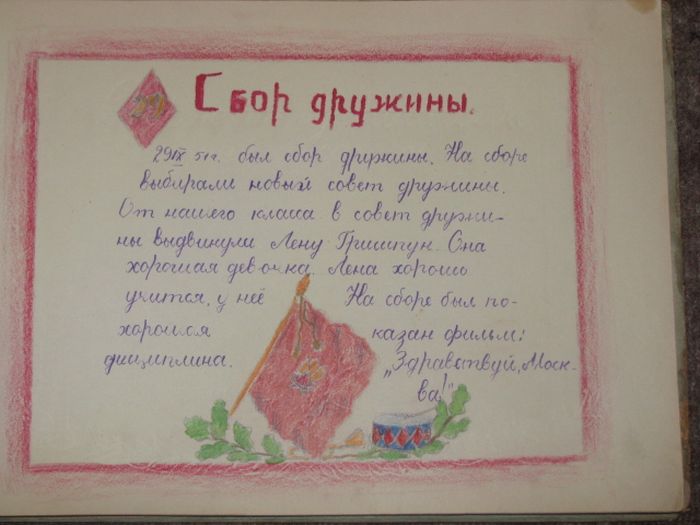 29
Сбор дружины.
29 IX 51 г. был сбор дружины. На сборе
выбирали новый совет дружины.
От нашего класса в совет дружи-
ны выдвинули Лену Гришпун. Она
хорошая девочка. Лена хорошо
учится, у неё
хорошая
дисциплина.
На сборе был по-
казан фильм:
„Здравствуй, Моск-
ва!"